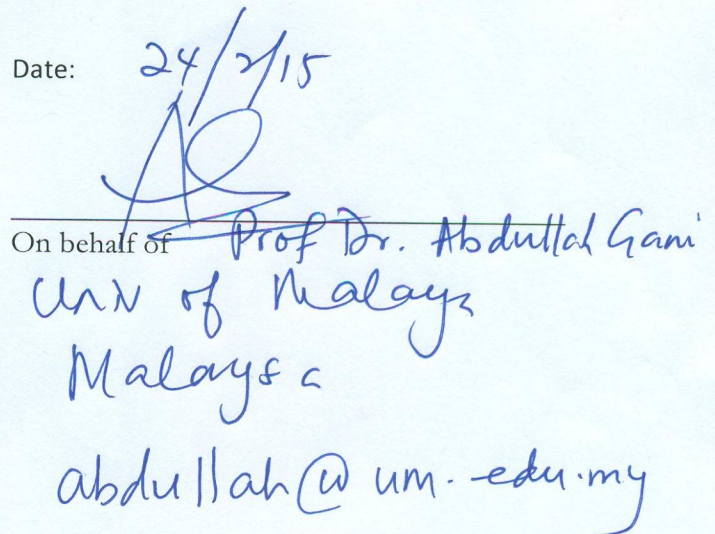 Date: 24/2/15
On behalf of Prof Dr. Abdullah Gani
Univ of Malaya
Malaysia
abdullah@um.edu.my